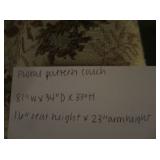 Floral pattern couch
81"W x 34"D x 33"H
16" seat height x 23" arm height